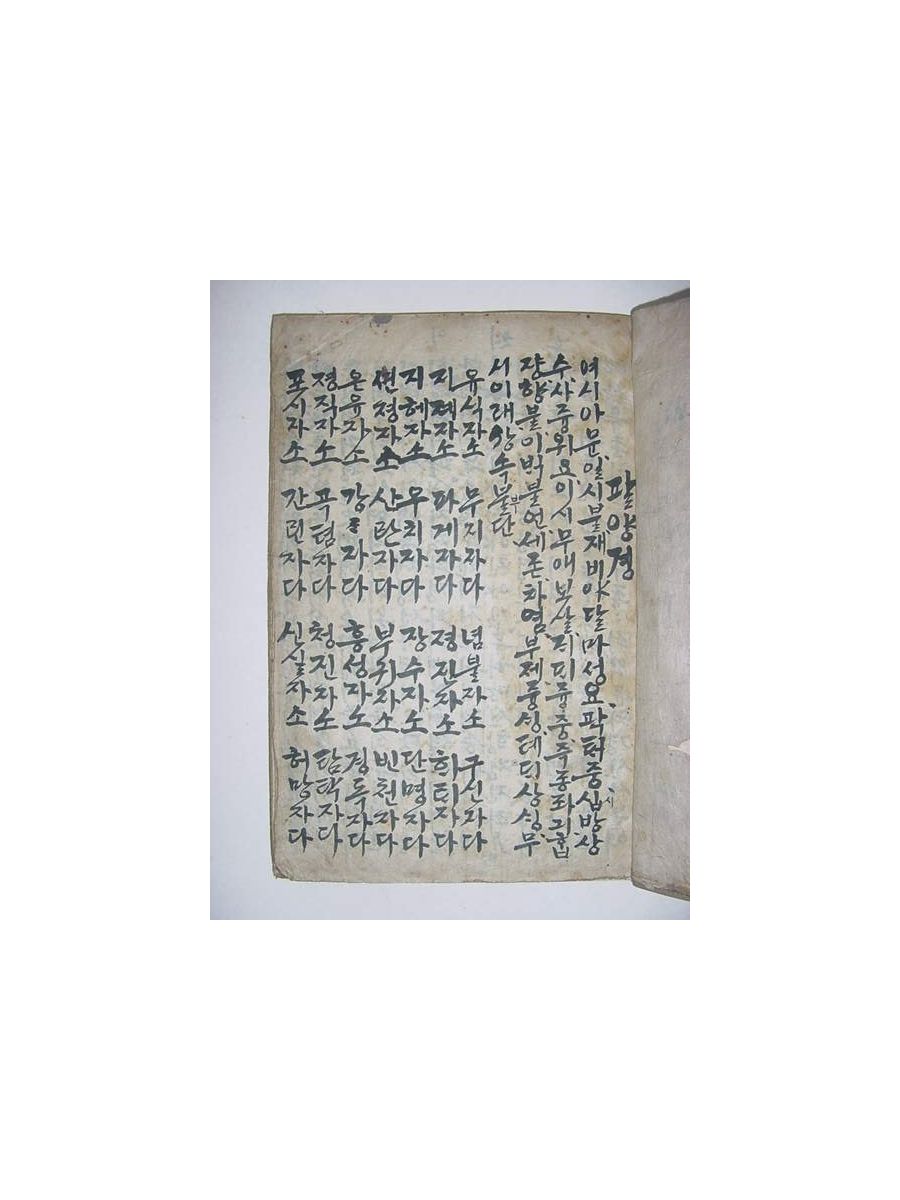 팔양경
여시아문일시불재비야달마성요곽처중십방상
수사중위요이시무애보살재피중중주종좌기
쟝향불이백불언세존차염부제중싱테디상싱무
시이래상속부단
유식자소 무지자다 념불자소 구신자다
지계자소 파게자다 졍진자소 하티자다
지혜자소 무치자다 장수자소 단명자다
션졍자소 산란자다 부귀자소 빈쳔자다
온유자소 강자다 흥셩자소 경독자다
졍직자소 곡텸자다 청진자소 탐탁자다
포시자소 간린자다 신실자소 허망자다